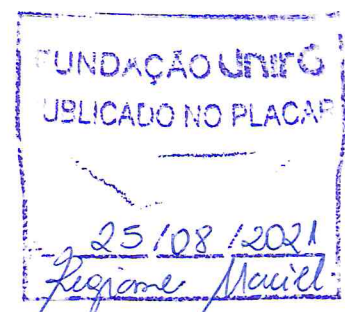 FUNDAÇÃO UnirG
UBLICADO NO PLACAR
25/08/2021
Regiane Maciel